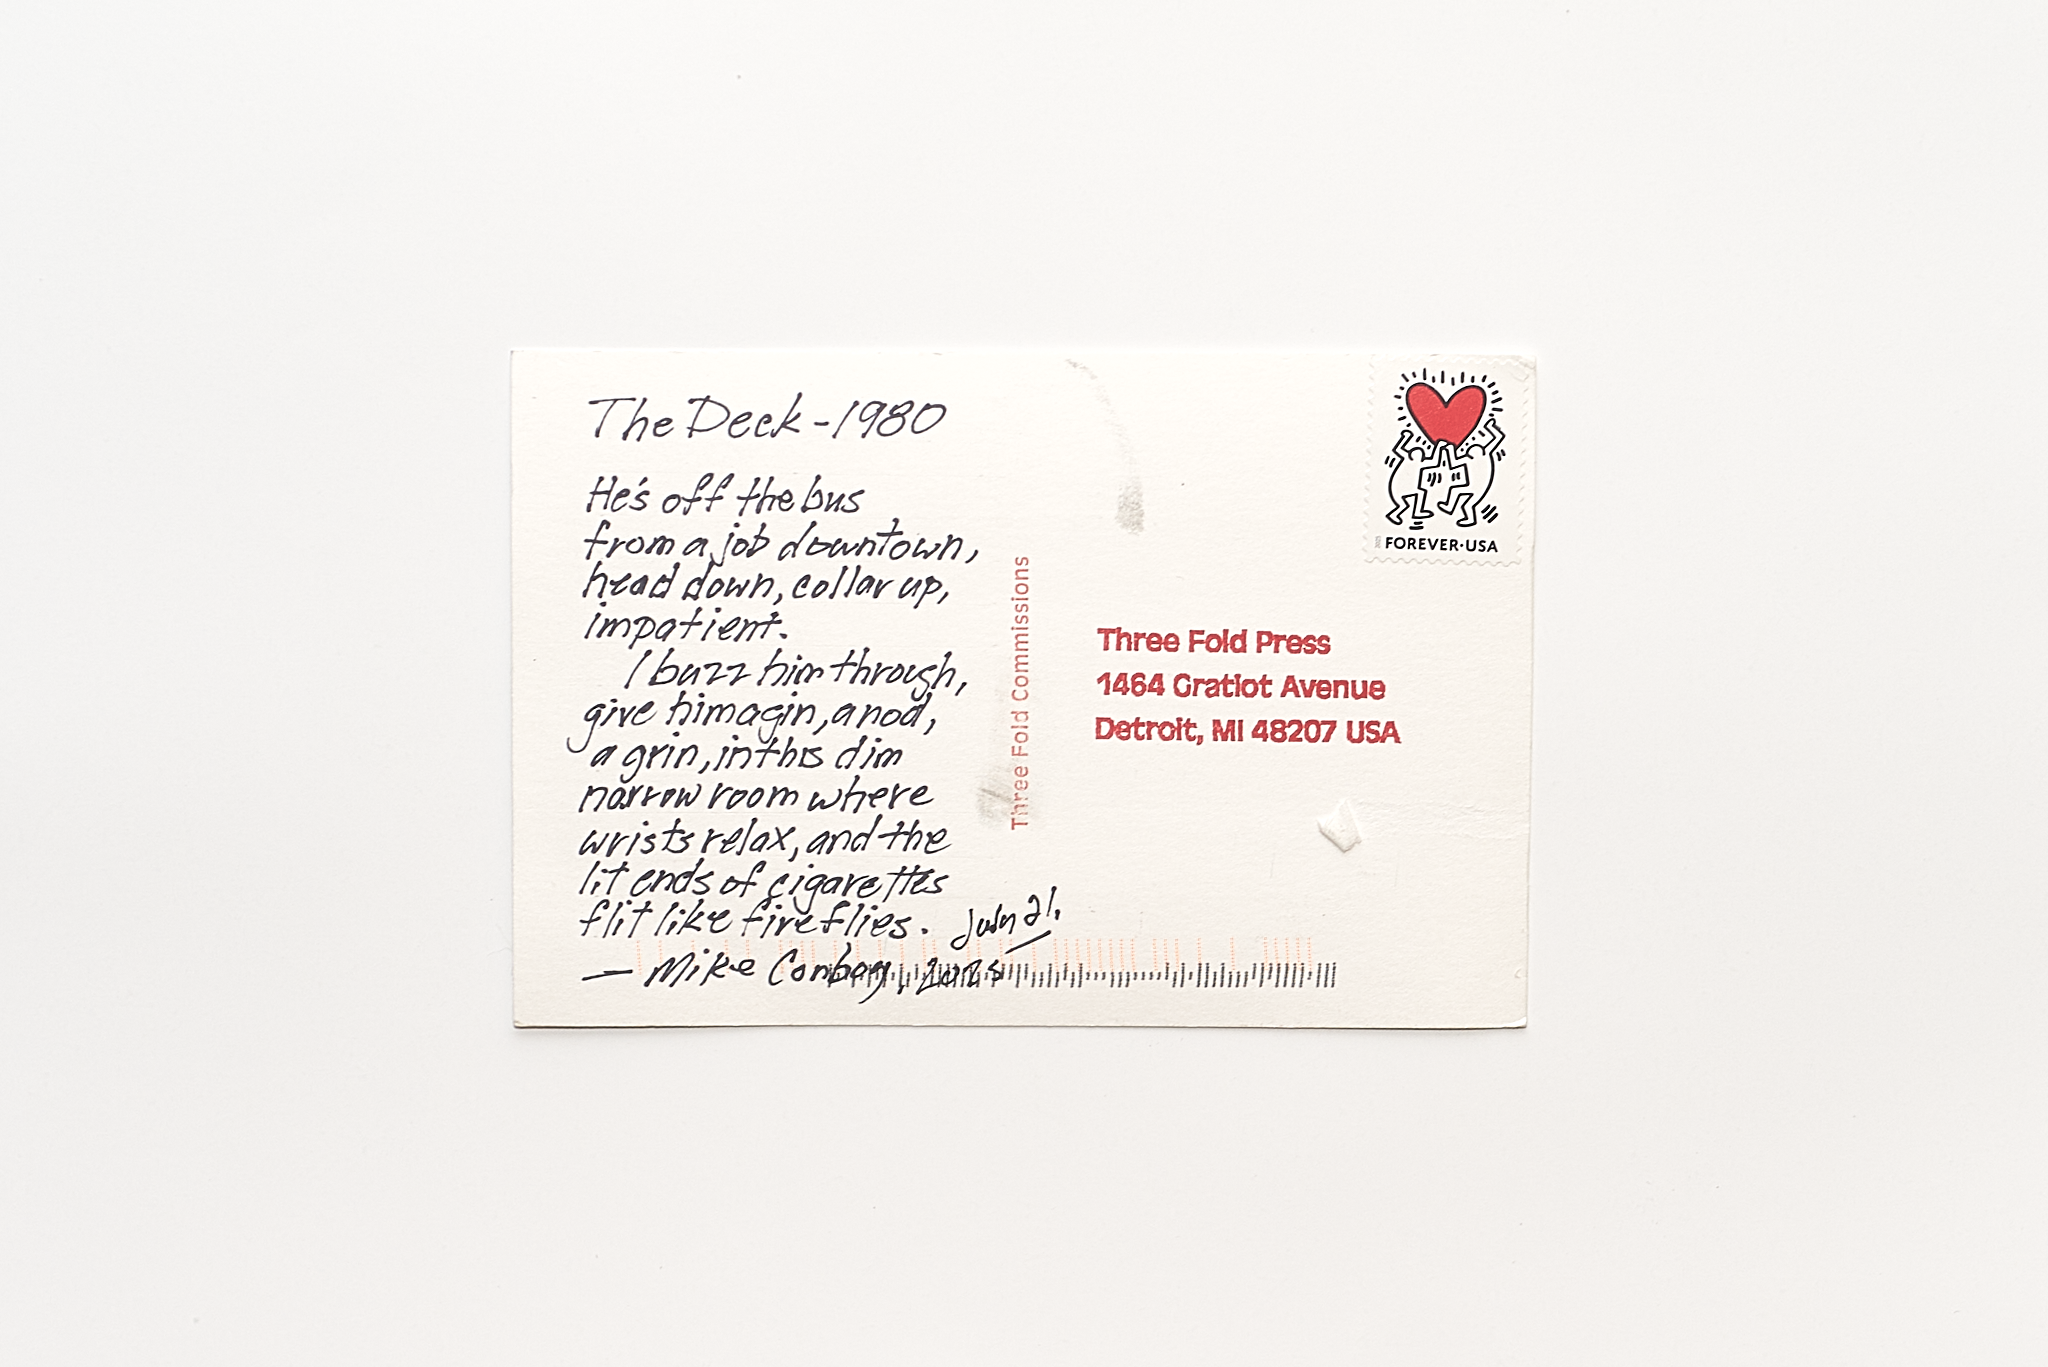 The Deck - 1980
He's off the bus
from a job downtown,
head down, collar up,
impatient.
I buzz him through,
give him a gin, a nod,
a grin, in this dim
narrow room where
wrists relax, and the
lit ends of cigarettes
flit like fireflies.
21,
— Mike Conboy, 2025
Three Fold Commissions
FOREVER·USA
Three Fold Press
1464 Gratiot Avenue
Detroit, MI 48207 USA